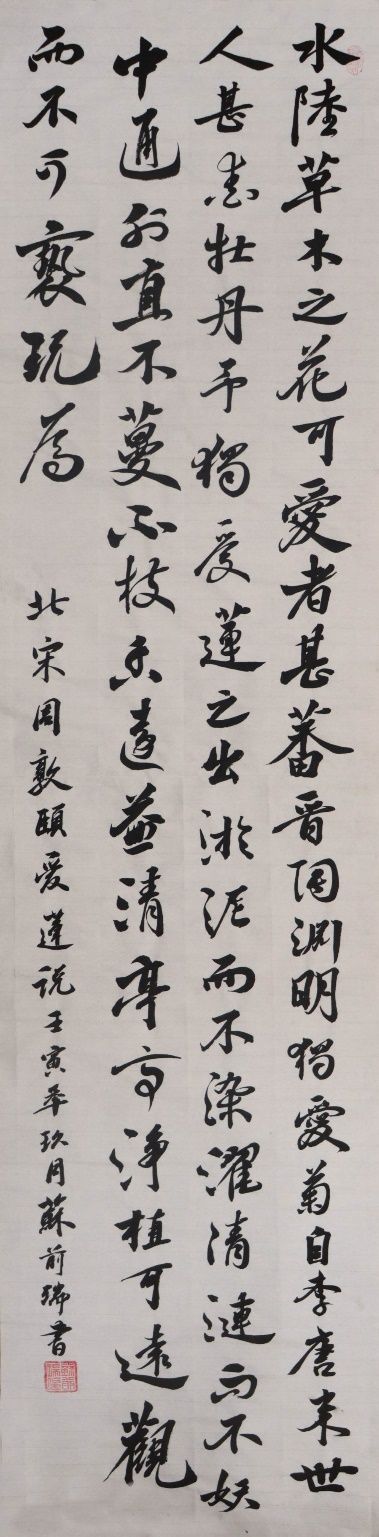 水陸草木之花可愛者甚蕃晉陶淵明獨愛菊自李唐来世
人甚愛牡丹予獨愛蓮之出淤泥而不染濯清漣而不妖
中通外直不蔓不枝香遠益清亭亭淨植可遠觀
而不可褻玩焉
北宋周敦頤愛蓮说壬寅年玖月蘇前瑞書